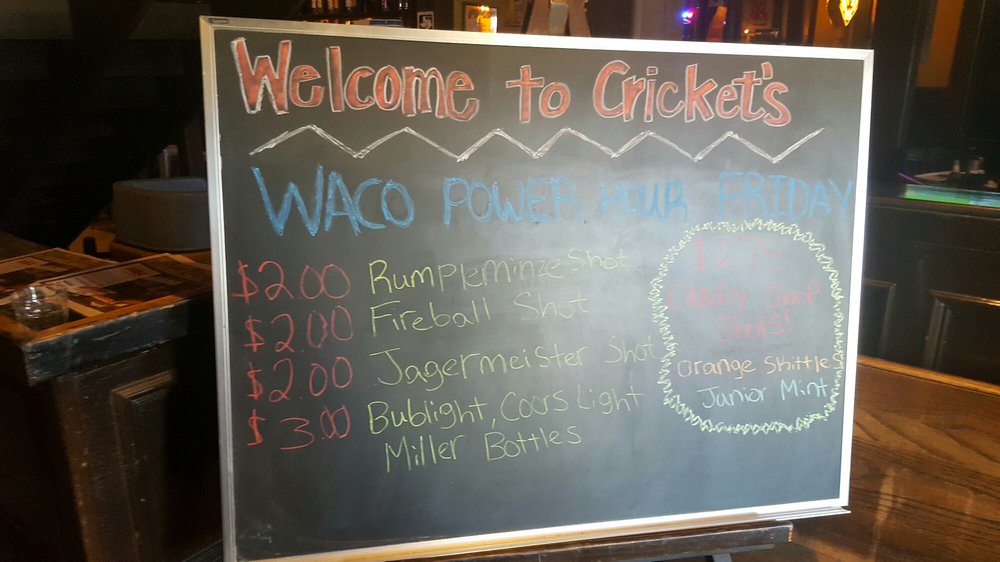 Welcome to Cricket's
WACO POWER HOUR FRIDAY
$2.00 Rumpleminze Shot
$2.00 Fireball Shot
$2.00 Jagermeister Shot
$3.00 Bublight, Coors Light
Miller Bottles
CANDY SHOP
Shots!
Orange Skittle
Junior Mint